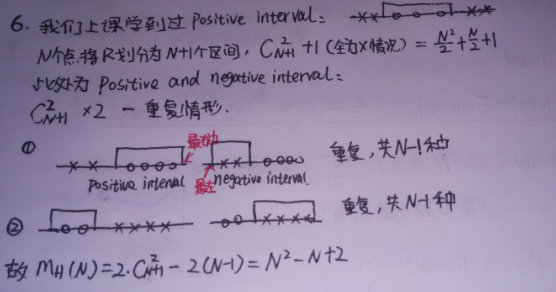 6. 我们上课学到过 Positive interval: ××oooo××
N个点将R划分为N+1个区间, C²_{N+1} +1 (全为×情况) = N²/2 + N/2 + 1
此处为 Positive and negative interval:
C²_{N+1} ×2 - 重复情形.
① ××oooo 最右边 ××ooo 重复,共N-1种
Positive interval 最左 negative interval
② oo×××× oo×××× 重复,共N-1种
故 m_H(N)=2·C²_{N+1} - 2(N-1) = N²-N+2